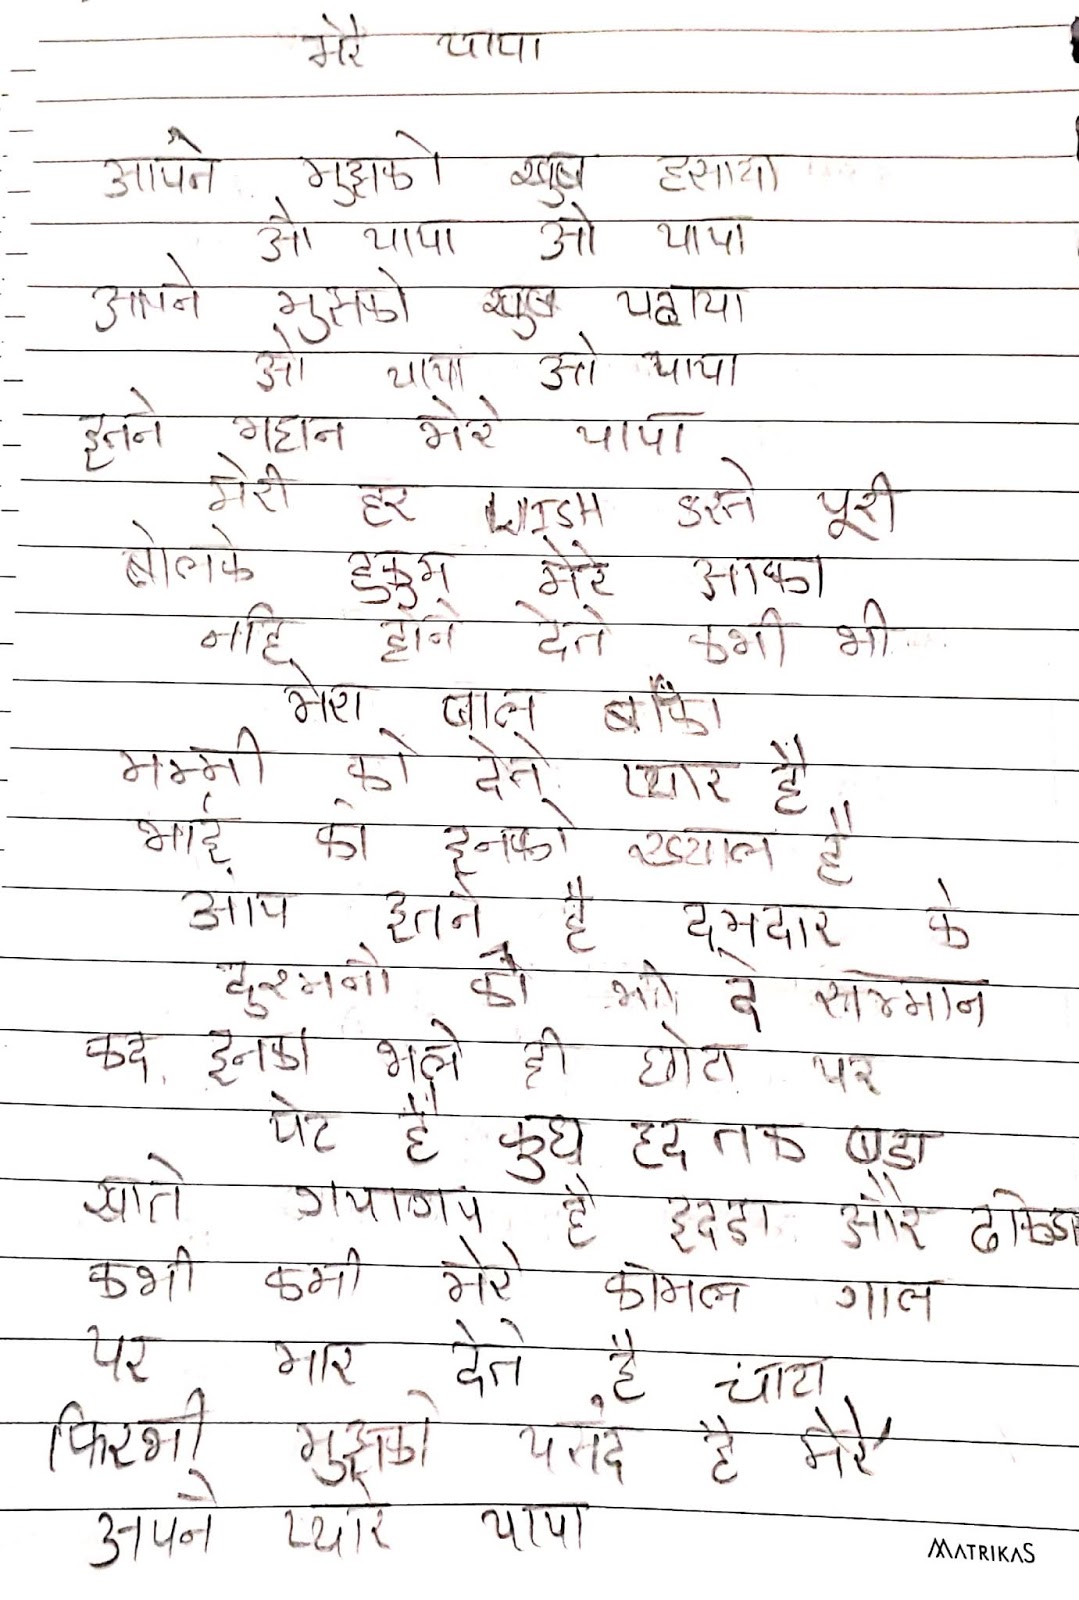 मेरे पापा
आपने मुझको खुब हसाया
ओ पापा ओ पापा
आपने मुझको खुब पढाया
ओ पापा ओ पापा
इतने महान मेरे पापा
मेरी हर WISH करते पूरी
बोलके हुकुम मेरे आका
नहि होने देते कभी भी
मेरा बाल बाँका
मम्मी को देते प्यार है
भाई का इनको ख्याल है
आप इतने है दमदार के
दुश्मनो को भी दे सम्मान
कद इनका भले ही छोटा पर
पेट है कुछ हद तक बडा
खाते गपागप है इदडा और ढोकडा
कभी कभी मेरे कोमल गाल
पर मार देते है चाटा
फिरभी मुझको पसंद है मेरे
अपने प्यारे पापा
MATRIKAS